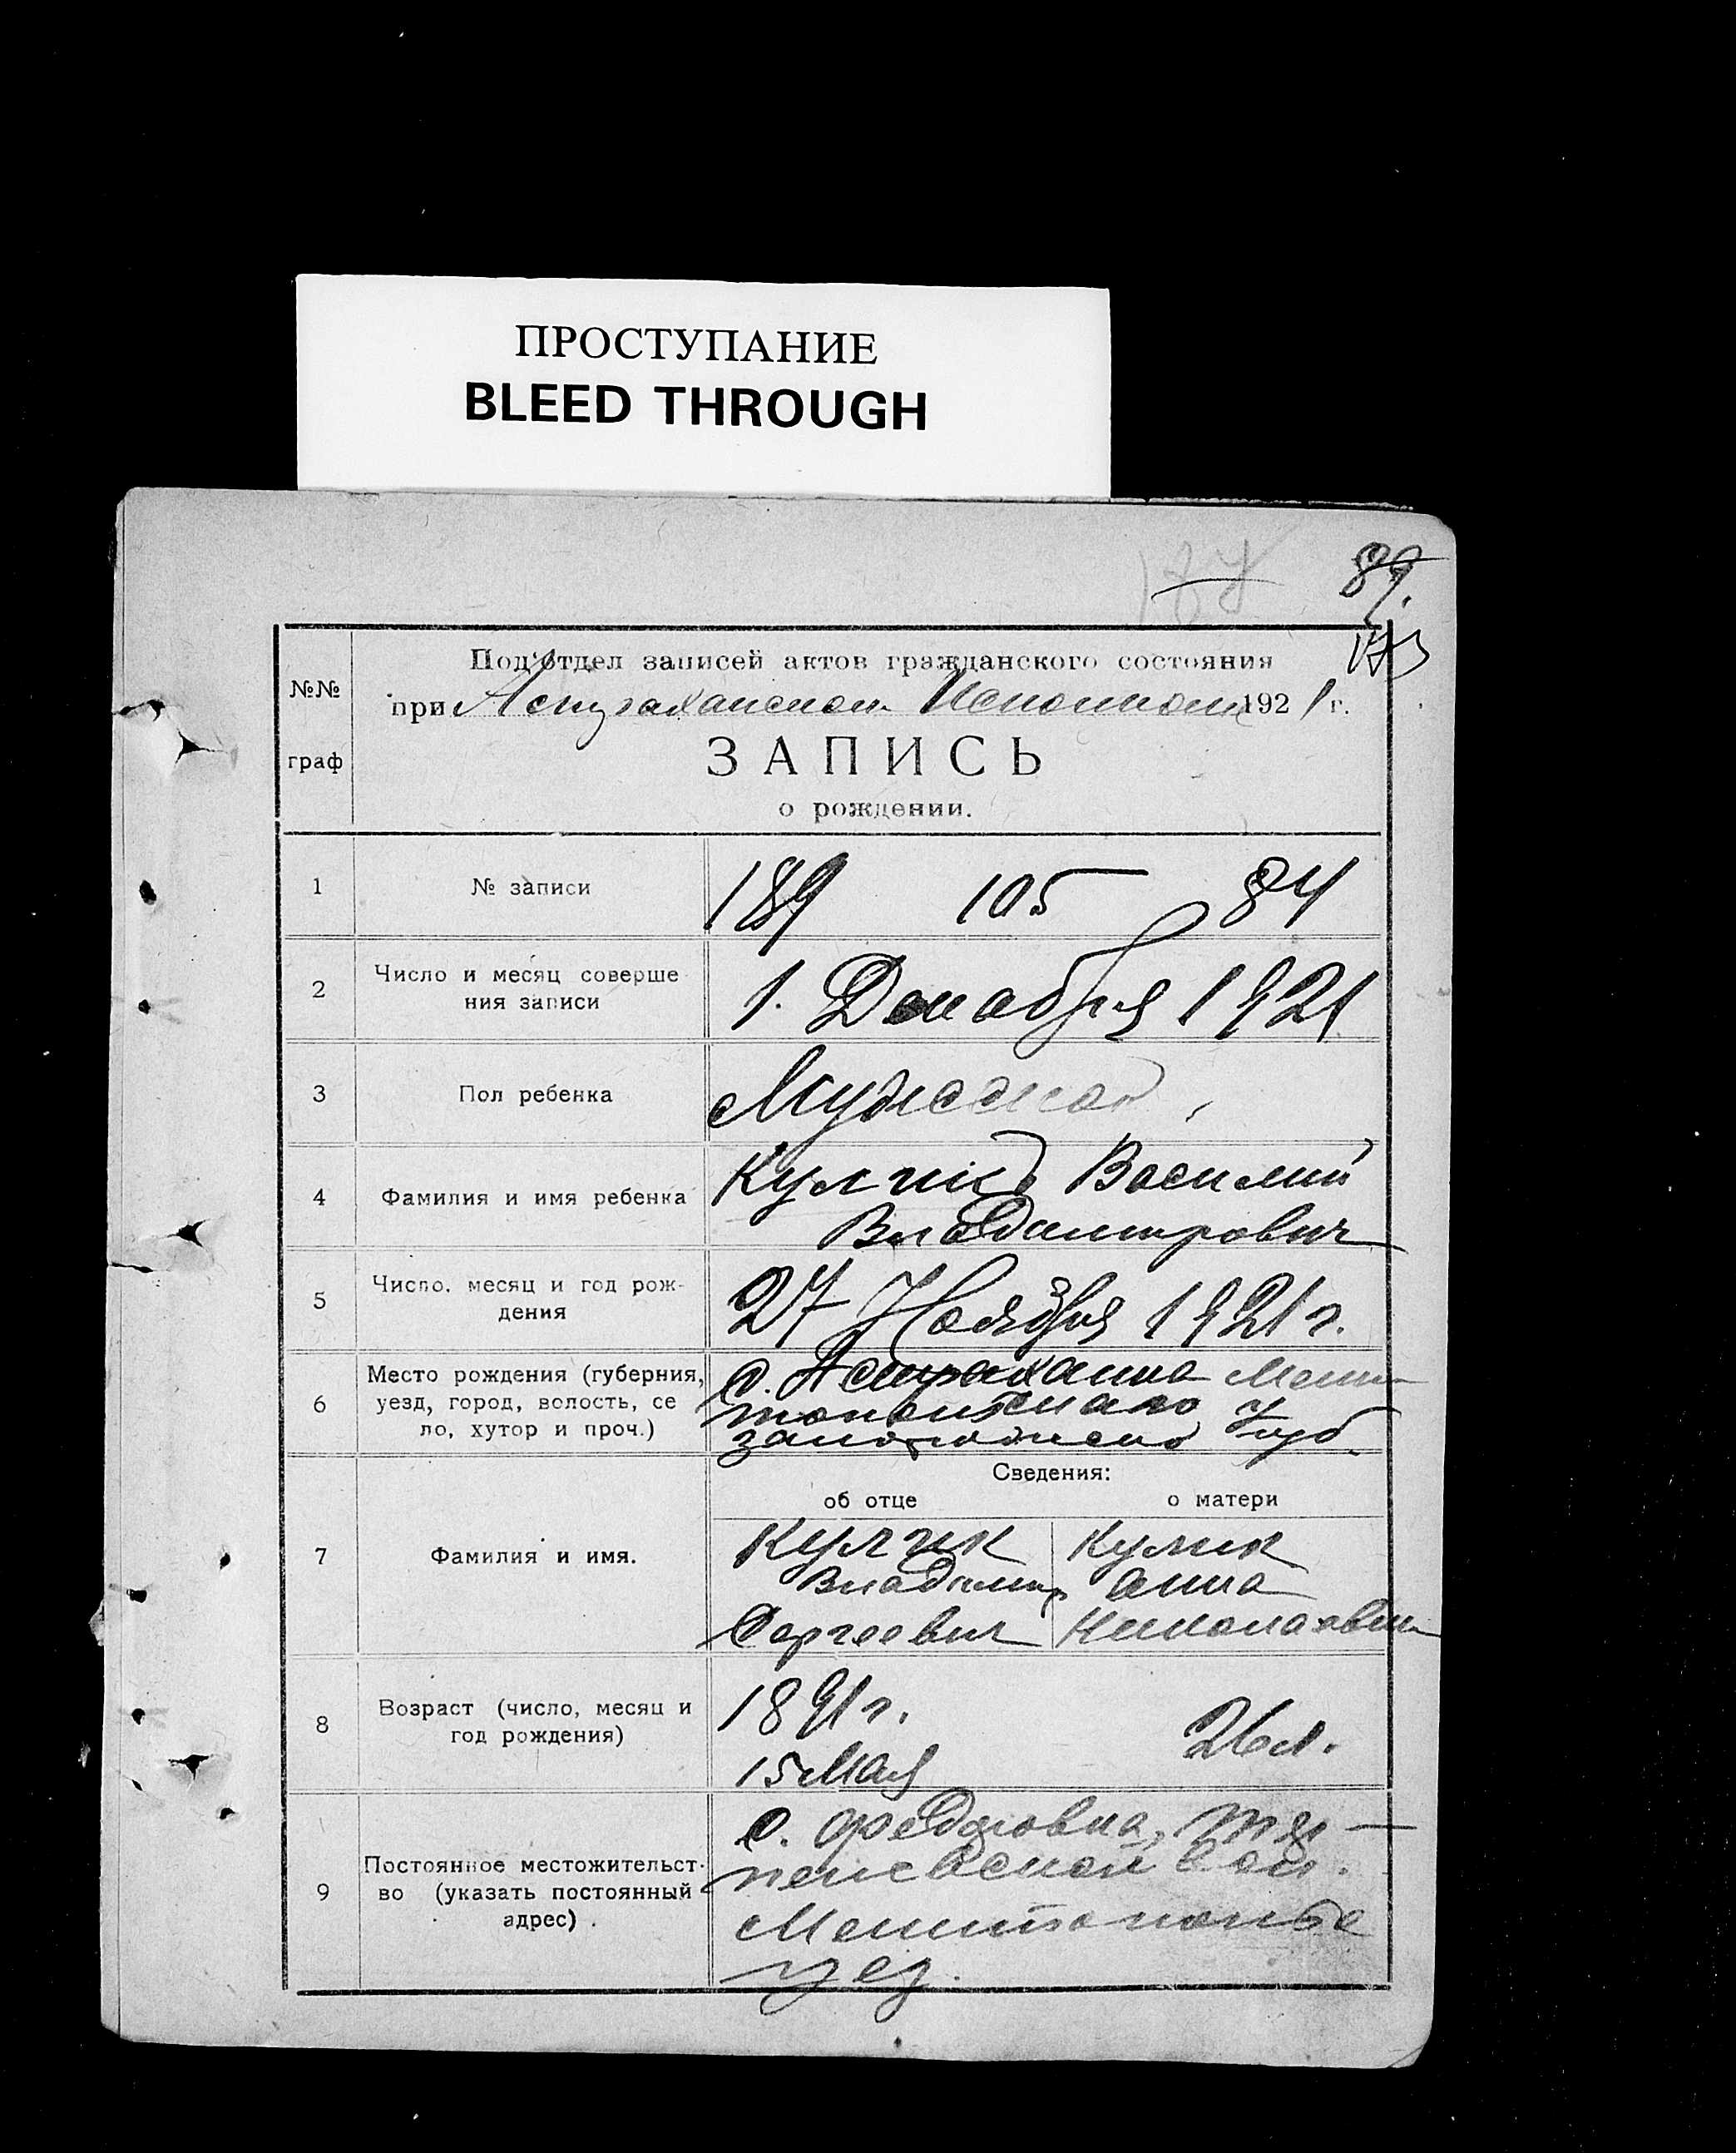 ПРОСТУПАНИЕ
BLEED THROUGH
89.
173
№№
граф
Под'отдел записей актов гражданского состояния
при Астраханском Исполкоме 1921 г.
ЗАПИСЬ
о рождении.
1 № записи 189 105 84
2 Число и месяц соверше
ния записи 1. Декабря 1921
3 Пол ребенка Мужской
4 Фамилия и имя ребенка Кулик Василий
Владимирович
5 Число, месяц и год рож-
дения 27 Ноября 1921 г.
6 Место рождения (губерния,
уезд, город, волость, се
ло, хутор и проч.) с. Астраханка Мели-
топольскаго
Губ.
Сведения:
об отце о матери
7 Фамилия и имя. Кулик Кулик
Владимир Анна
Сергеевич Николаевна
8 Возраст (число, месяц и
год рождения) 1891 г. 26 л.
15 Мая
9 Постоянное местожительст-
во (указать постоянный
адрес). с. Федоровка,
вол.
уез.